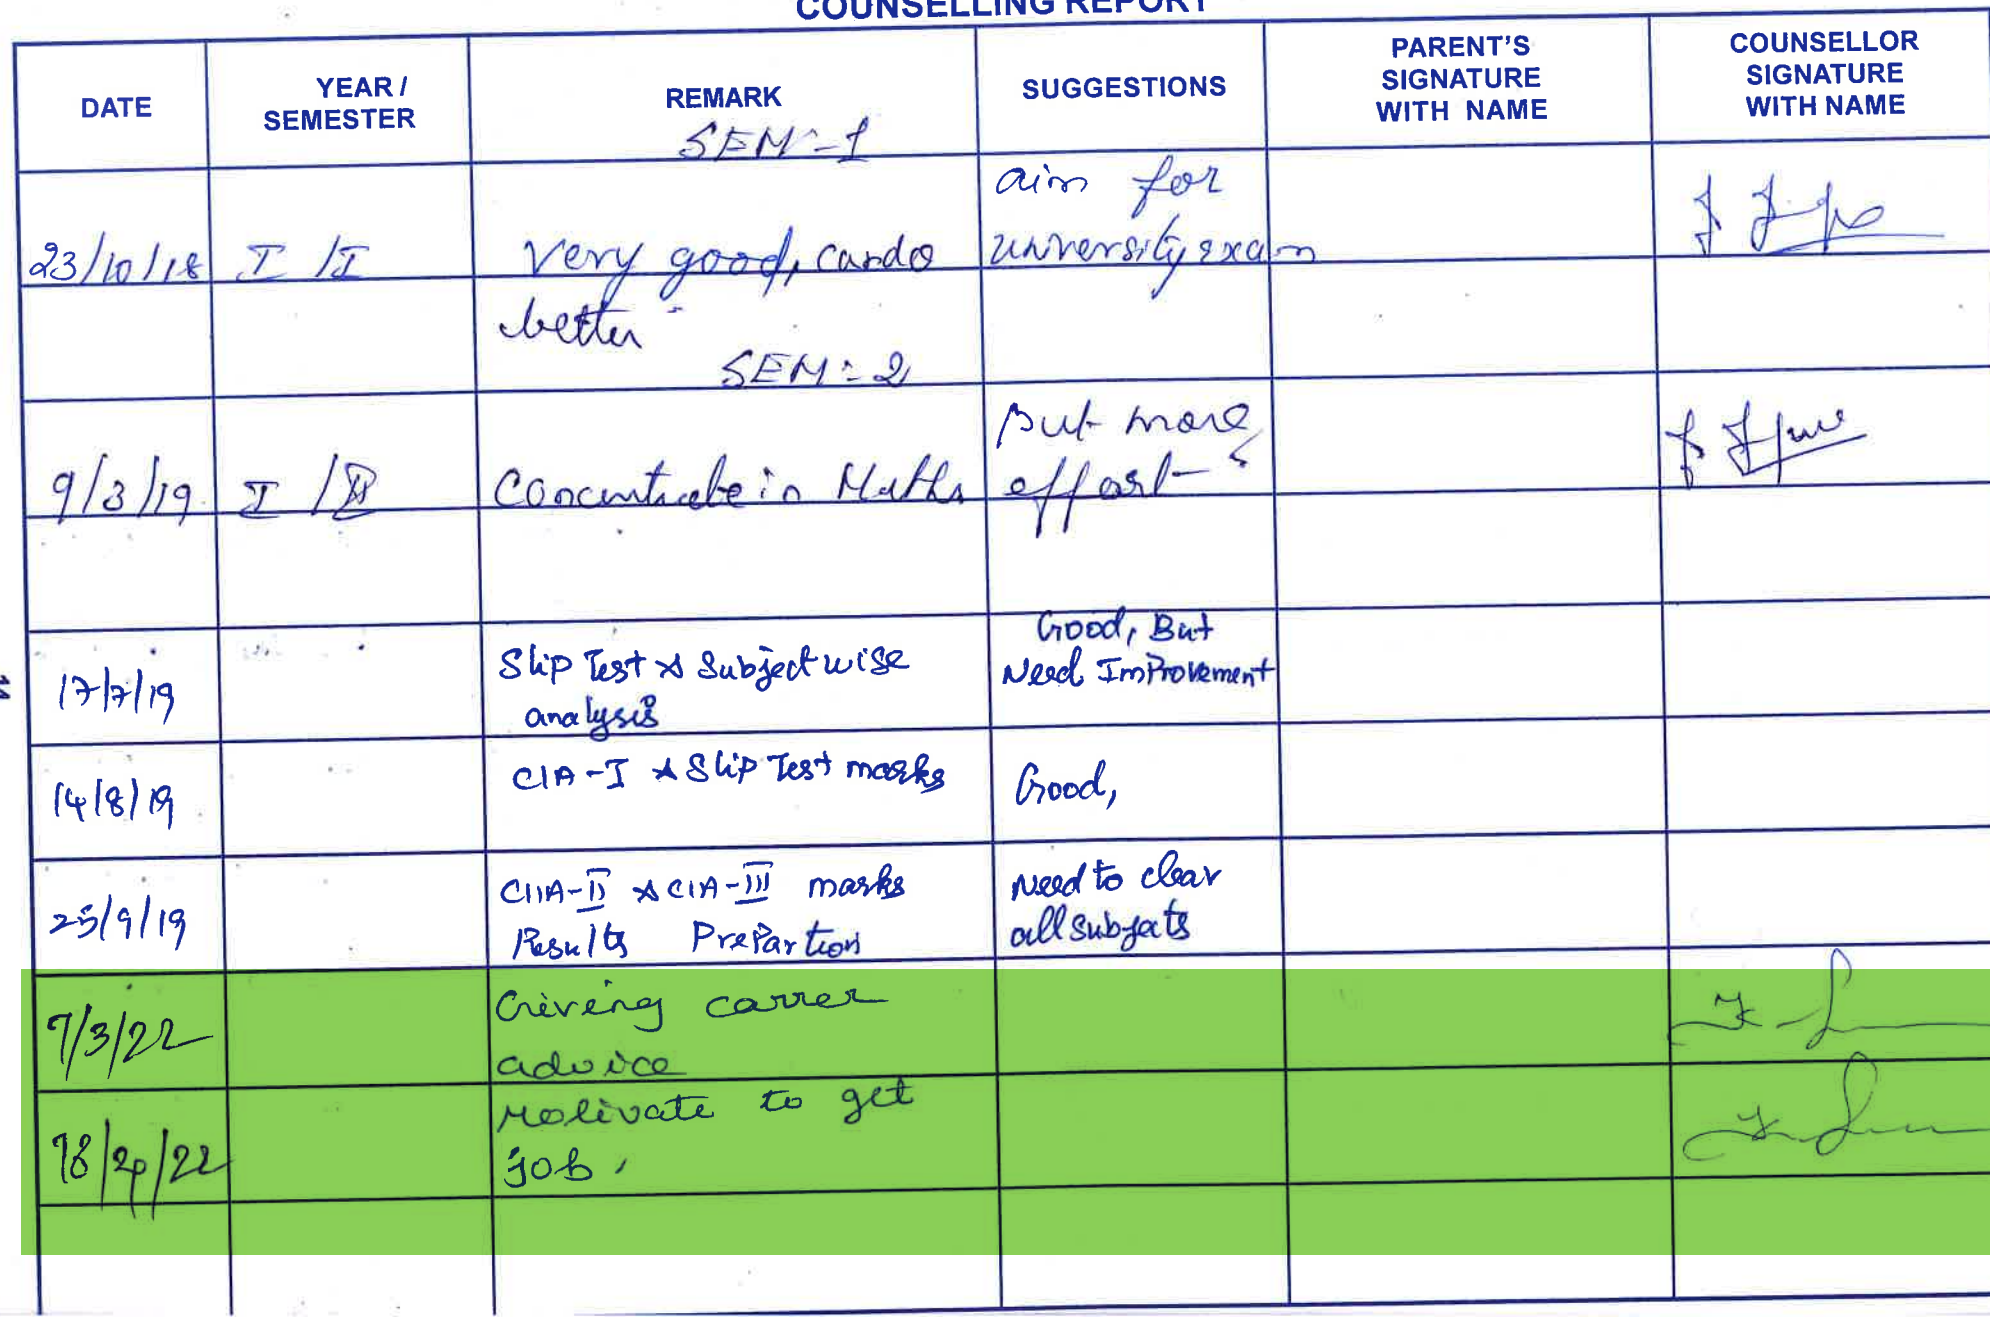 COUNSELLING REPORT
DATE
YEAR /
SEMESTER
REMARK
SUGGESTIONS
PARENT'S
SIGNATURE
WITH NAME
COUNSELLOR
SIGNATURE
WITH NAME
SEM-1
23/10/18 I /I Very good, can do
better
aim for
university exam
SEM:2
9/3/19 I /II Concentrate in Maths
put more
effort
17/7/19
Slip Test & Subject wise
analysis
Good, But
Need Improvement
14/8/19
CIA-I & Slip Test marks
Good,
25/9/19
CIIA-II & CIA-III marks
Results Prepartion
Need to clear
all subjects
7/3/22
Giving carrer
advice
18/4/22
Motivate to get
job,